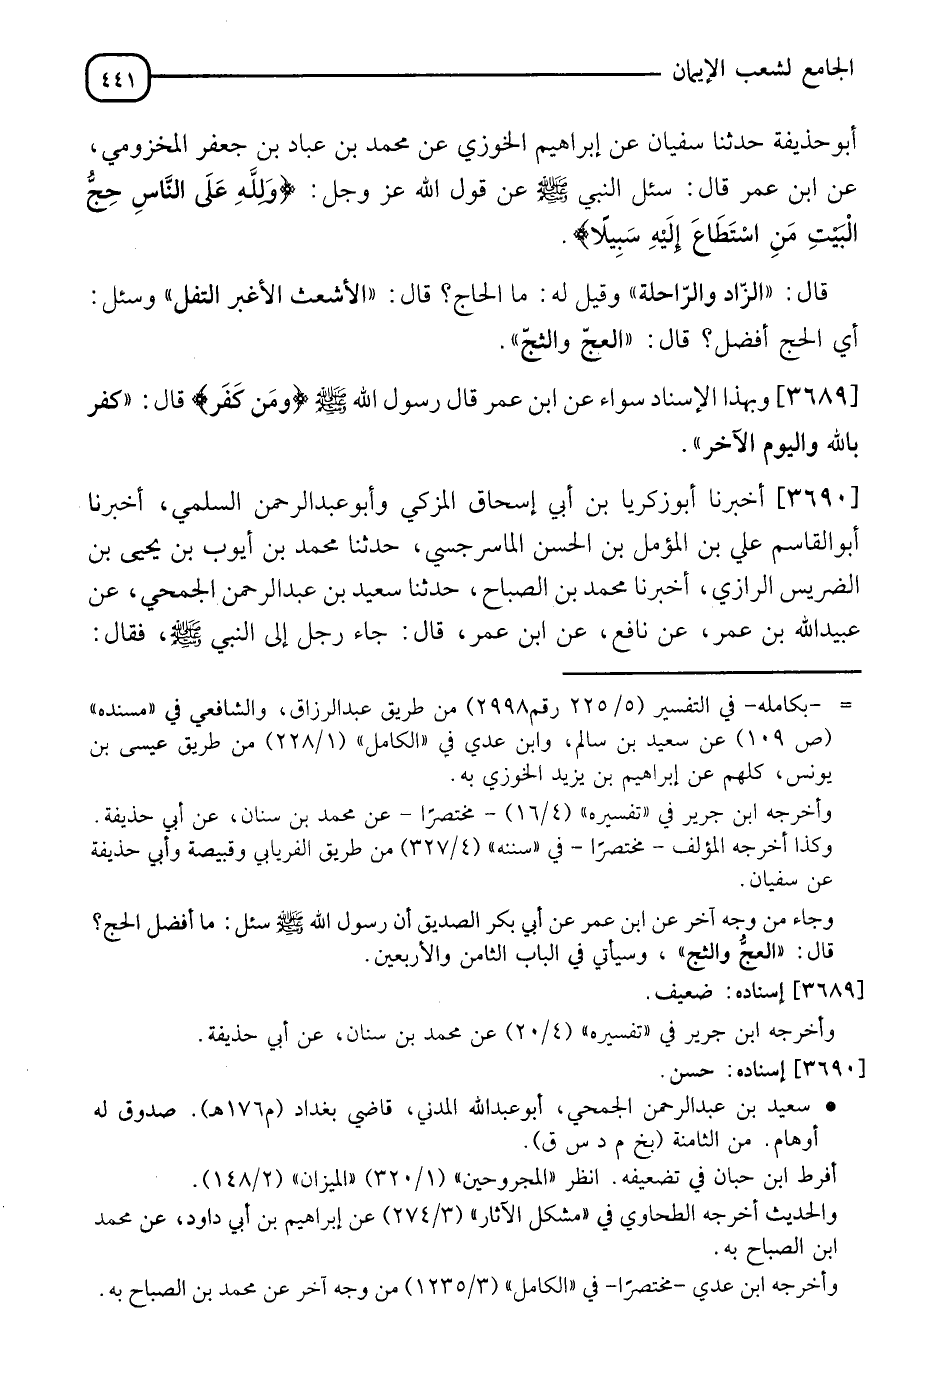 الجامع لشعب الإيمان
٤٤١
أبو حذيفة حدثنا سفيان عن إبراهيم الخوزي عن محمد بن عباد بن جعفر المخزومي،
عن ابن عمر قال: سئل النبي ﷺ عن قول الله عز وجل: ﴿وَلِلَّهِ عَلَى النَّاسِ حِجُّ
الْبَيْتِ مَنِ اسْتَطَاعَ إِلَيْهِ سَبِيلًا﴾.
قال: «الزّاد والرّاحلة» وقيل له: ما الحاج؟ قال: «الأشعث الأغبر التفل» وسئل:
أي الحج أفضل؟ قال: «العجّ والثجّ».
[٣٦٨٩] وبهذا الإسناد سواء عن ابن عمر قال رسول الله ﷺ ﴿ومَن كَفَر﴾ قال: «كفر
بالله واليوم الآخر».
[٣٦٩٠] أخبرنا أبوزكريا بن أبي إسحاق المزكي وأبوعبدالرحمن السلمي، أخبرنا
أبوالقاسم علي بن المؤمل بن الحسن الماسرجسي، حدثنا محمد بن أيوب بن يحيى بن
الضريس الرازي، أخبرنا محمد بن الصباح، حدثنا سعيد بن عبدالرحمن الجمحي، عن
عبيدالله بن عمر، عن نافع، عن ابن عمر، قال: جاء رجل إلى النبي ﷺ، فقال:
= -بكامله- في التفسير (٢٢٥/٥ رقم٢٩٩٨) من طريق عبدالرزاق، والشافعي في «مسنده»
(ص ١٠٩) عن سعيد بن سالم، وابن عدي في «الكامل» (٢٢٨/١) من طريق عيسى بن
يونس، كلهم عن إبراهيم بن يزيد الخوزي به.
وأخرجه ابن جرير في «تفسيره» (١٦/٤) - مختصرًا - عن محمد بن سنان، عن أبي حذيفة.
وكذا أخرجه المؤلف - مختصرًا - في «سننه» (٣٢٧/٤) من طريق الفريابي وقبيصة وأبي حذيفة
عن سفيان.
وجاء من وجه آخر عن ابن عمر عن أبي بكر الصديق أن رسول الله ﷺ سئل: ما أفضل الحج؟
قال: «العجُّ والثج» ، وسيأتي في الباب الثامن والأربعين.
[٣٦٨٩] إسناده: ضعيف.
وأخرجه ابن جرير في «تفسيره» (٢٠/٤) عن محمد بن سنان، عن أبي حذيفة.
[٣٦٩٠] إسناده: حسن.
• سعيد بن عبدالرحمن الجمحي، أبوعبدالله المدني، قاضي بغداد (م١٧٦هـ). صدوق له
أوهام. من الثامنة (بخ م د س ق).
أفرط ابن حبان في تضعيفه. انظر «المجروحين» (٣٢٠/١) «الميزان» (١٤٨/٢).
والحديث أخرجه الطحاوي في «مشكل الآثار» (٢٧٤/٣) عن إبراهيم بن أبي داود، عن محمد
ابن الصباح به.
وأخرجه ابن عدي -مختصرًا- في «الكامل» (١٢٣٥/٣) من وجه آخر عن محمد بن الصباح به.